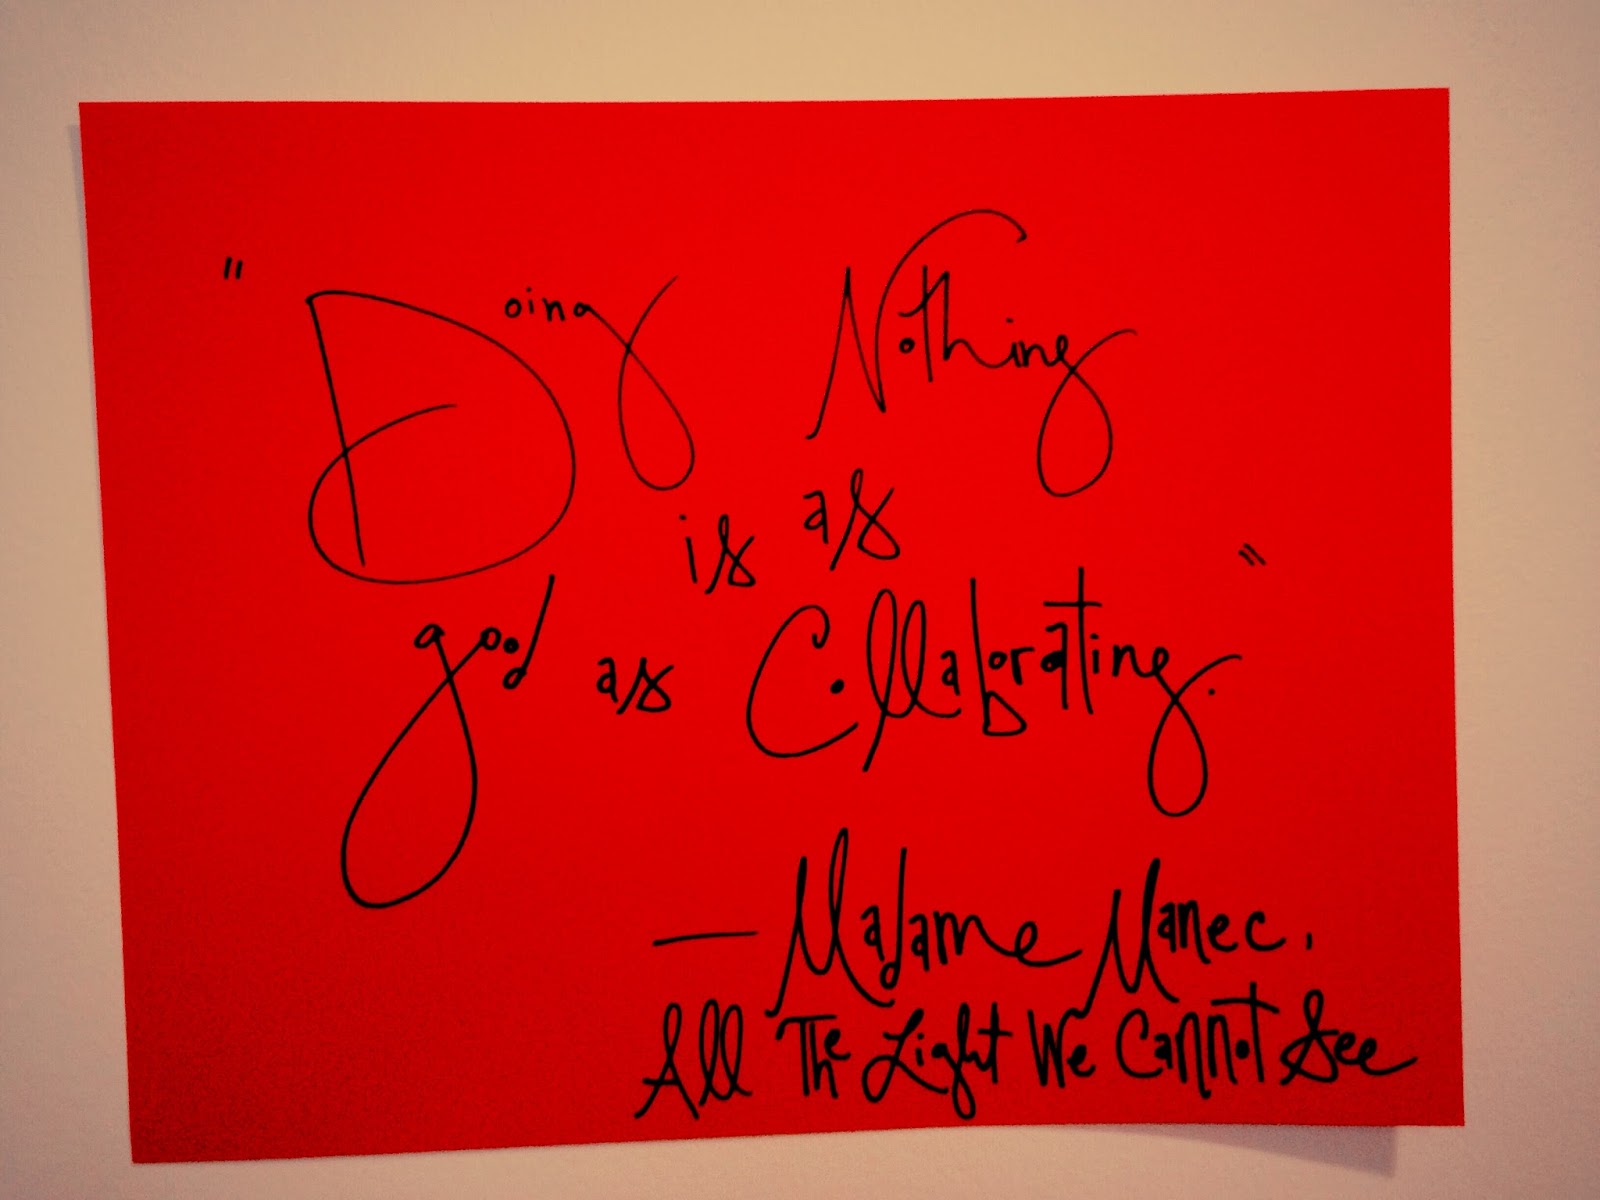 "Doing Nothing
is as
good as Collaborating."
— Madame Manec,
All The Light We Cannot See